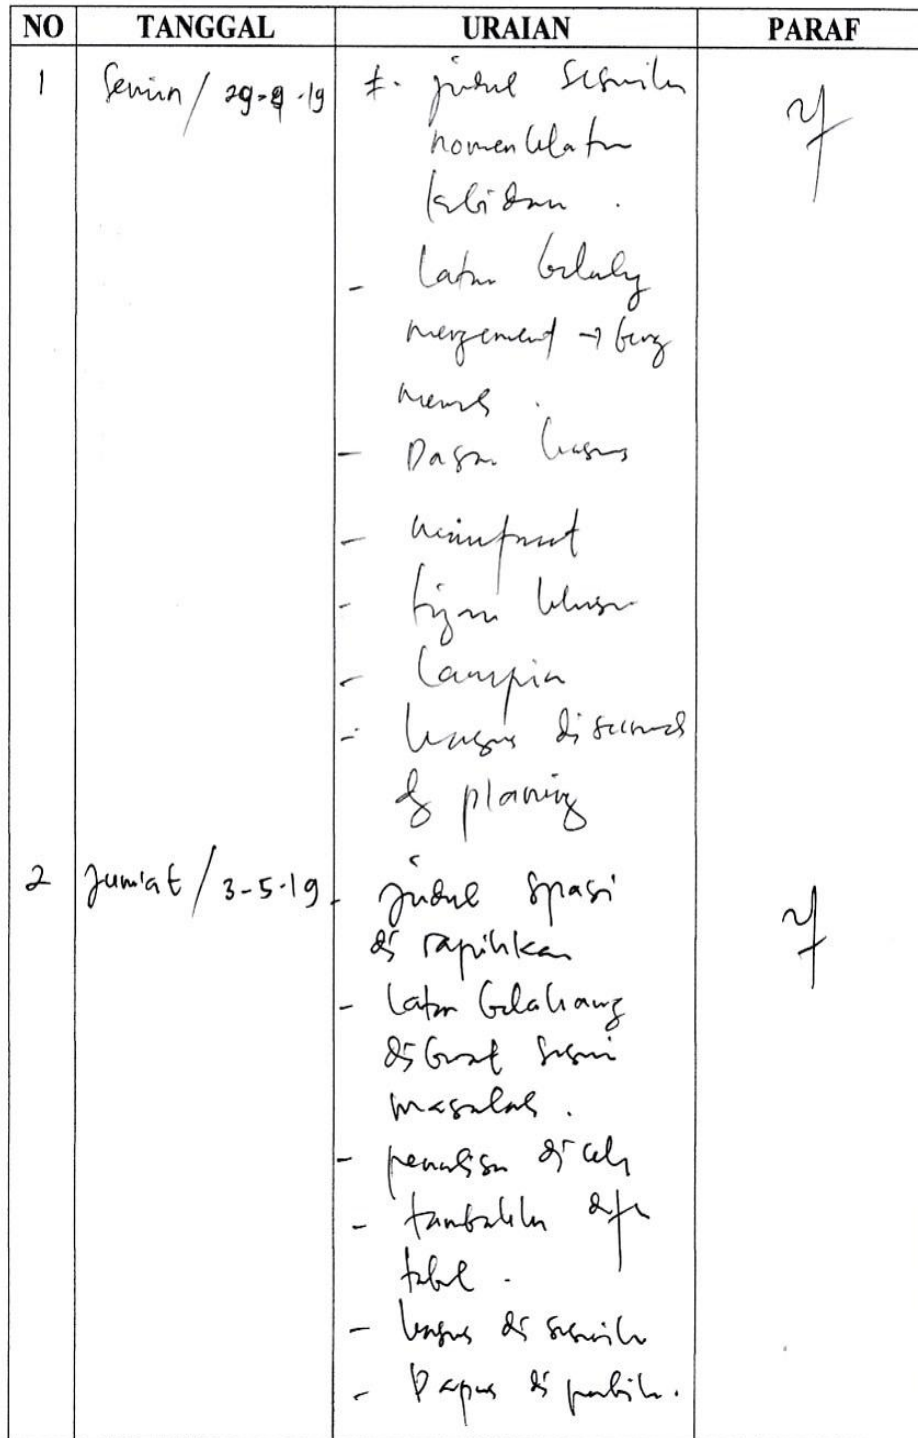 NO TANGGAL URAIAN PARAF
1 Senin / 29-4-19 - judul sesuaikn
nomenklatur
kebidanan.
- latar belakang
→
- Dasar kasus
- manfaat
- tujuan khusus
- Lampiran
- kasus disesuaikn
dg planing
2 Jum'at / 3-5-19 - judul spasi
di rapihkan
- latar belakang
dibuat sesuai
masalah.
- penulisan di cek
- tambahkn dftr
tabel.
- kasus di sesuaikn
- Dapus di perbaiki.